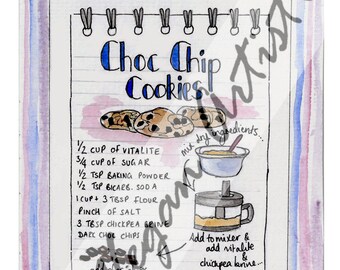 Choc Chip
Cookies
½ CUP OF VITALITE
¾ CUP OF SUGAR
½ TSP BAKING POWDER
½ TSP BICARB. SODA
1 CUP & 3 TBSP FLOUR
PINCH OF SALT
3 TBSP CHICKPEA BRINE
DARK CHOC CHIPS
mix dry ingredients...
Add to mixer &
add vitalite
&
chickpea brine...
Vegan Artist